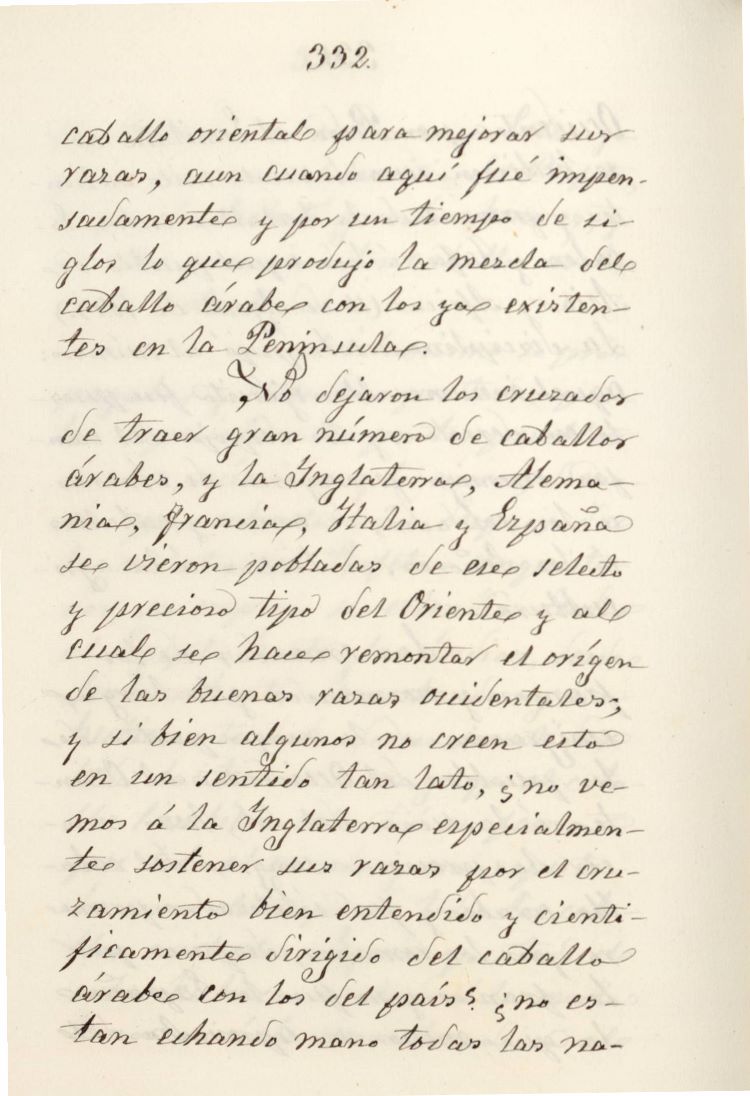 332.
caballo oriental para mejorar sus
razas, aun cuando aquí fué impen-
sadamente y por un tiempo de si-
glos lo que produjo la mezcla del
caballo árabe con los ya existen-
tes en la Península.
No dejaron los cruzados
de traer gran número de caballos
árabes, y la Inglaterra, Alema-
nia, Francia, Italia y España
se vieron pobladas de ese selecto
y precioso tipo del Oriente y al
cual se hace remontar el orígen
de las buenas razas occidentales;
y si bien algunos no creen esto
en un sentido tan lato, ¿no ve-
mos á la Inglaterra especialmen-
te sostener sus razas por el cru-
zamiento bien entendido y cienti-
ficamente dirigido del caballo
árabe con los del país? ¿no es-
tan echando mano todas las na-